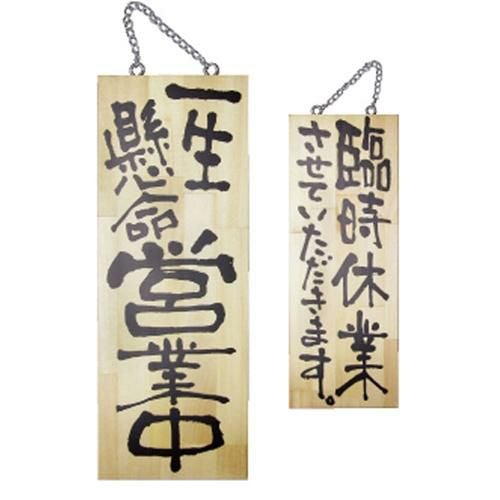 一生
懸命
営業中
臨時休業
させていただきます。